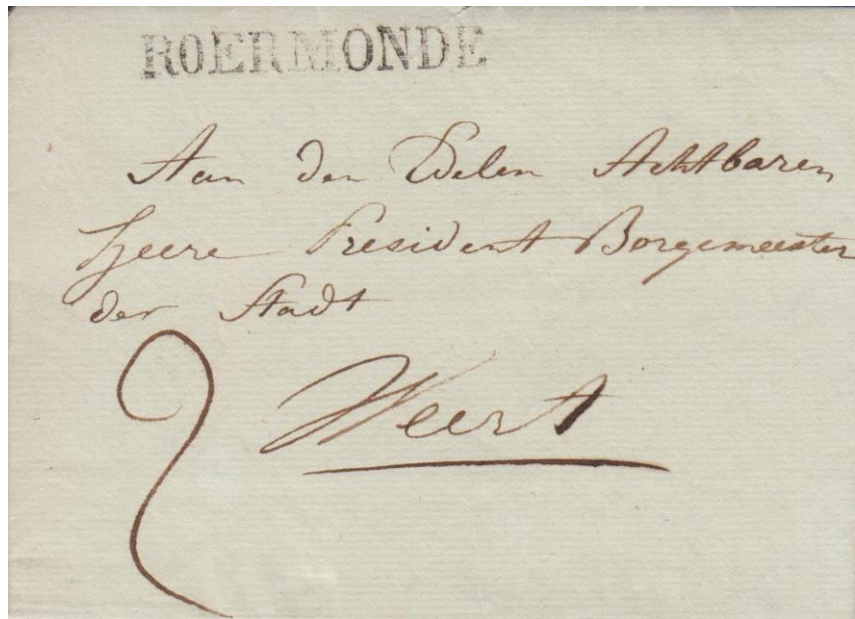 ROERMONDE
Aan den Edelen Achtbaren
Heere President Borgemeester
der Stadt
Weert
2